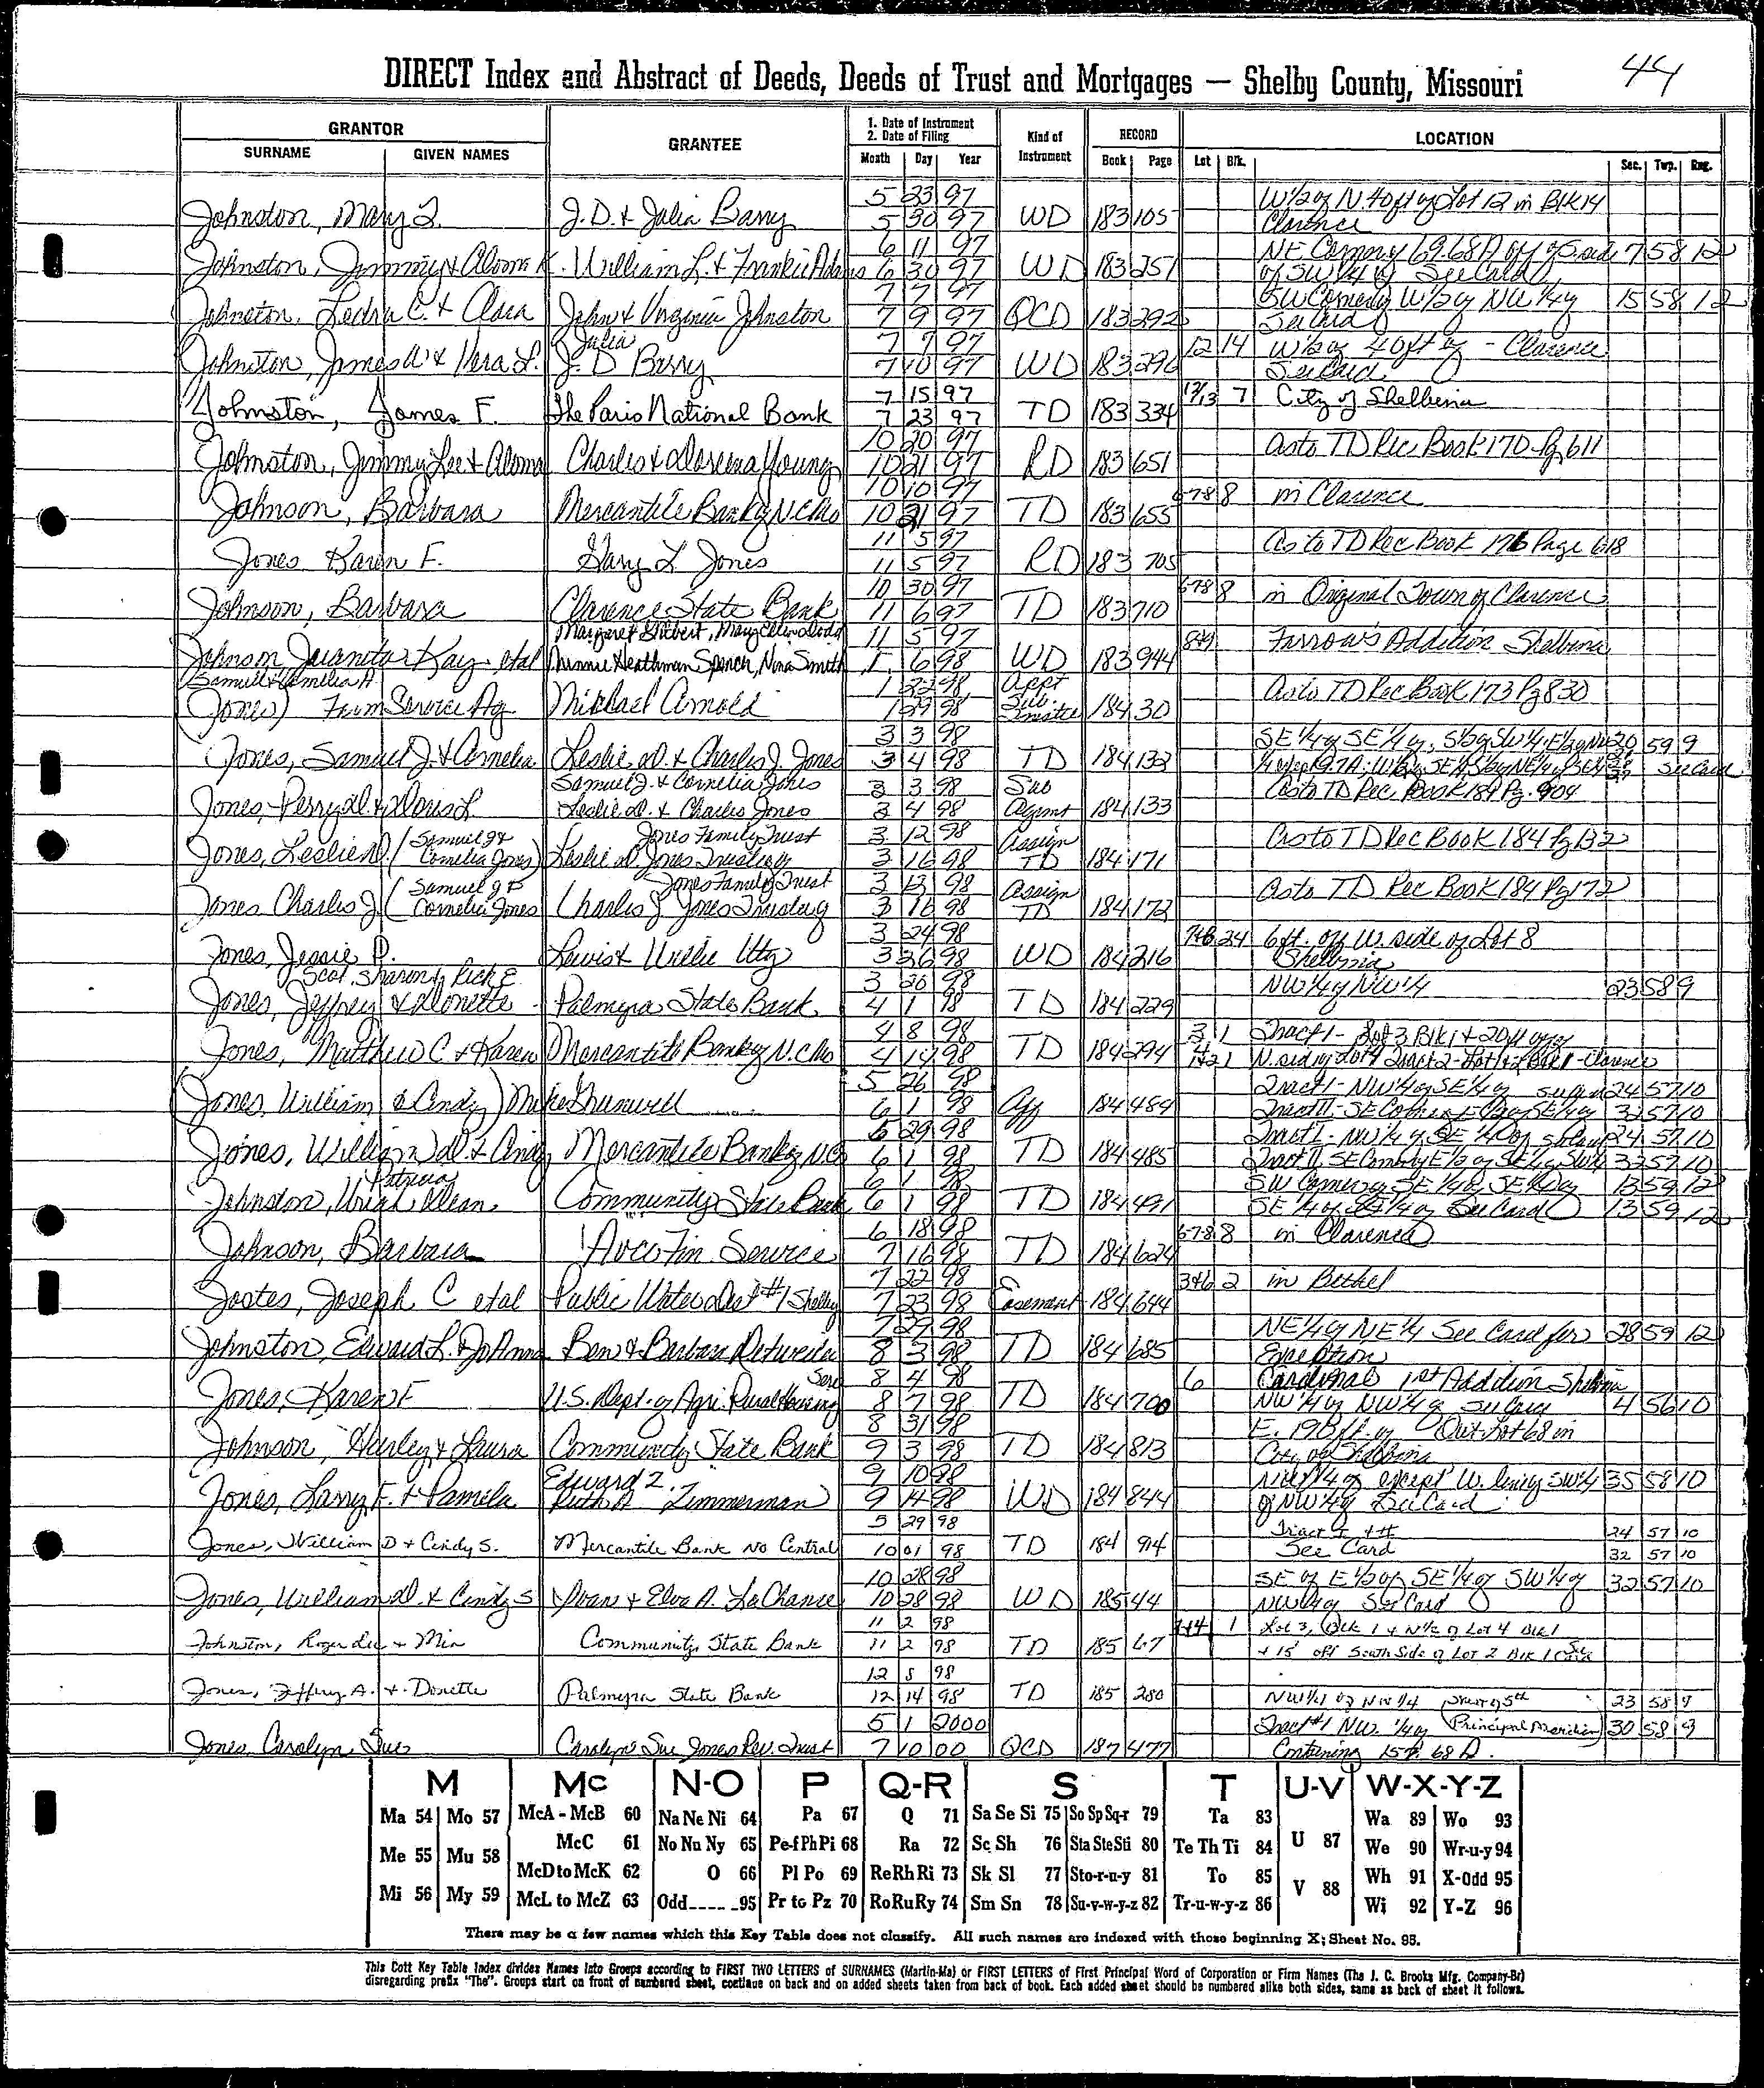 44
DIRECT Index and Abstract of Deeds, Deeds of Trust and Mortgages — Shelby County, Missouri
GRANTOR GRANTEE 1. Date of Instrument 2. Date of Filing Kind of Instrument RECORD LOCATION
SURNAME GIVEN NAMES Month Day Year Book Page Lot Blk. Sec. Twp. Rng.
5 23 97 W½ of N. 40 ft of Lot 12 in Blk 14
Johnston, Mary J.D. & Julia Barry 5 30 97 WD 183 105 Clarence
6 11 97 NE Corner 69.68A off of 7 58 12
Johnston, Jimmy & Aloma K. William L. & Frankie Adams 6 30 97 WD 183 251 of SW¼ of See Card
7 7 97 SW Corner W½ of NW¼ of 15 58 12
Johnston, Ledra C. & Clara John & Virginia Johnston 7 9 97 QCD 183 292 See Card
Julia 7 7 97 12 14 W½ of 40 ft of - Clarence
Johnston, James W & Vera L. J.D Barry 7 10 97 WD 183 296 See Card
7 15 97 12/13 7 City of Shelbina
Johnston, James F. The Paris National Bank 7 23 97 TD 183 334
10 20 97 As to TD Rec Book 170 Pg 611
Johnston, Jimmy Lee & Aloma Charles & Young 10 21 97 RD 183 651
10 10 97 6-7-8 8 in Clarence
Johnson, Barbara Mercantile Bank of N.C. Mo 10 21 97 TD 183 655
11 5 97 As to TD Rec Book 176 Page 618
Jones Karen F. Gary L Jones 11 5 97 RD 183 705
10 30 97 6-7-8 8 in Original Town of Clarence
Johnson, Barbara Clarence State Bank 11 6 97 TD 183 710
Margaret Stribert, Mary 11 5 97 8&9 Farrow's Addition Shelbina
Johnson, Juanita Kay etal Minnie Heathman Spencer, Nina Smith 1 6 98 WD 183 944
Samuel & Cornelia A 1 98 Appt As to TD Rec Book 173 Pg 830
(Jones) Farm Service Ag Michael Arnold 1 29 98 Sub Trustee 184 30
3 3 98 SE¼ of SE¼ of, S½ of SW¼ 20 59 9
Jones, Samuel J. & Cornelia Leslie D. & Charles J. Jones 3 4 98 TD 184 132 See Card
Samuel J. & Cornelia Jones 3 3 98 Sub As to TD Rec. Book 184 Pg. 904
Jones, Perry D. & Doris L Leslie D. & Charles Jones 3 4 98 Agrmt 184 133
(Samuel J & Jones Family Trust 3 12 98 Assign As to TD Rec Book 184 Pg 132
Jones, Leslie D. Cornelia Jones) Leslie D. Jones Trustee of 3 16 98 TD 184 171
(Samuel J & Jones Family Trust 3 13 98 Assign As to TD Rec Book 184 Pg 172
Jones Charles J Cornelia Jones) Charles J Jones Trustee of 3 16 98 TD 184 172
3 24 98 7&8 24 6 ft. off W. side of Lot 8
Jones, Jessie D. Lewis & Willie Utz 3 26 98 WD 184 216 Shelbina
Scot, Sharon & Rick E. 3 26 98 NW¼ of NW¼ 23 58 9
Jones, Jeffrey & Donette Palmyra State Bank 4 1 98 TD 184 229
4 8 98 3 1 Tract 1 - Lot 3 Blk 1 & 20 ft off of
Jones, Matthew C & Karen Mercantile Bank of N.C. Mo 4 14 98 TD 184 294 1&2 1 N. side of Lot 4 Tract 2 - Lot 1&2 Blk 1 - Clarence
5 26 98 Tract 1 - NW¼ of SE¼ of 24 57 10
(Jones, William & Cindy) Mike Grunwell 6 1 98 Aff 184 484 Tract II - SE Corner E½ of SE¼ of 32 57 10
5 29 98 Tract 1 - NW¼ of SE¼ of 24 57 10
Jones, William D. & Cindy Mercantile Bank of N.C. 6 1 98 TD 184 485 Tract II SE Corner of E½ of SE¼ of SW¼ 32 57 10
Patricia 6 1 98 SW Corner of SE¼ of SE¼ of 13 59 12
Johnston, Uriah Dean Community State Bank 6 1 98 TD 184 491 SE¼ of SE¼ of See Card 13 59 12
6 18 98 6-7-8 8 in Clarence
Johnson, Barbara Avco Fin. Service 7 16 98 TD 184 624
7 22 98 3&6 2 in Bethel
Jostes, Joseph C etal Public Water Dist #1 Shelby 7 23 98 Easement 184 644
7 27 98 NE¼ of NE¼ See Card for 28 59 12
Johnston, Edward L. & JoAnna Ben & Barbara Detweiler 8 3 98 TD 184 685 Exception
Serv 8 4 98 6 Cardinal 1st Addition Shelbina
Jones, Karen F U.S. Dept. of Agri. Rural Housing 8 7 98 TD 184 700 NW¼ of NW¼ of See Card 4 56 10
8 31 98 E. 198 ft. of Out Lot 68 in
Johnson, Harley & Laura Community State Bank 9 3 98 TD 184 813 City of Shelbina
Edward Z. 9 10 98 NW¼ of except W. line of SW¼ 35 58 10
Jones, Larry F. & Pamela Ruth A Zimmerman 9 14 98 WD 184 844 of NW¼ of See Card
5 29 98 Tract I & II 24 57 10
Jones, William D & Cindy S. Mercantile Bank No Central 10 01 98 TD 184 914 See Card 32 57 10
10 28 98 SE of E½ of SE¼ of SW¼ of 32 57 10
Jones, William D. & Cindy S Ivan & Elva A. LaChance 10 28 98 WD 185 44 NW¼ of See Card
11 2 98 1&4 1 Lot 3, Blk 1 & N½ of Lot 4 Blk 1
Johnston, Roger Lee & Mia Community State Bank 11 2 98 TD 185 67 + 15' off South Side of Lot 2 Blk 1 See Card
12 8 98
Jones, Jeffrey A. & Donette Palmyra State Bank 12 14 98 TD 185 280 NW¼ of NW¼ 5th 23 58 9
5 1 2000 Tract #1 NW. ¼ of (Principal Meridian) 30 58 9
Jones, Carolyn Sue Carolyn Sue Jones Rev. Trust 7 10 00 QCD 187 477 Containing 68 A.
M Mc N-O P Q-R S T U-V W-X-Y-Z
Ma 54 Mo 57 McA - McB 60 Na Ne Ni 64 Pa 67 Q 71 Sa Se Si 75 So Sp Sq-r 79 Ta 83 Wa 89 Wo 93
Me 55 Mu 58 McC 61 No Nu Ny 65 Pe-f Ph Pi 68 Ra 72 Sc Sh 76 Sta Ste Sti 80 Te Th Ti 84 U 87 We 90 Wr-u-y 94
McD to McK 62 O 66 Pl Po 69 Re Rh Ri 73 Sk Sl 77 Sto-r-u-y 81 To 85 V 88 Wh 91 X-Odd 95
Mi 56 My 59 McL to McZ 63 Odd 95 Pr to Pz 70 Ro Ru Ry 74 Sm Sn 78 Su-v-w-y-z 82 Tr-u-w-y-z 86 Wi 92 Y-Z 96
There may be a few names which this Key Table does not classify. All such names are indexed with those beginning X; Sheet No. 95.
This Cott Key Table Index divides Names into Groups according to FIRST TWO LETTERS of SURNAMES (Martin-Ma) or FIRST LETTERS of First Principal Word of Corporation or Firm Names (The J. C. Brooks Mfg. Company-Br)
disregarding prefix "The". Groups start on front of numbered sheet, continue on back and on added sheets taken from back of book. Each added sheet should be numbered alike both sides, same as back of sheet it follows.